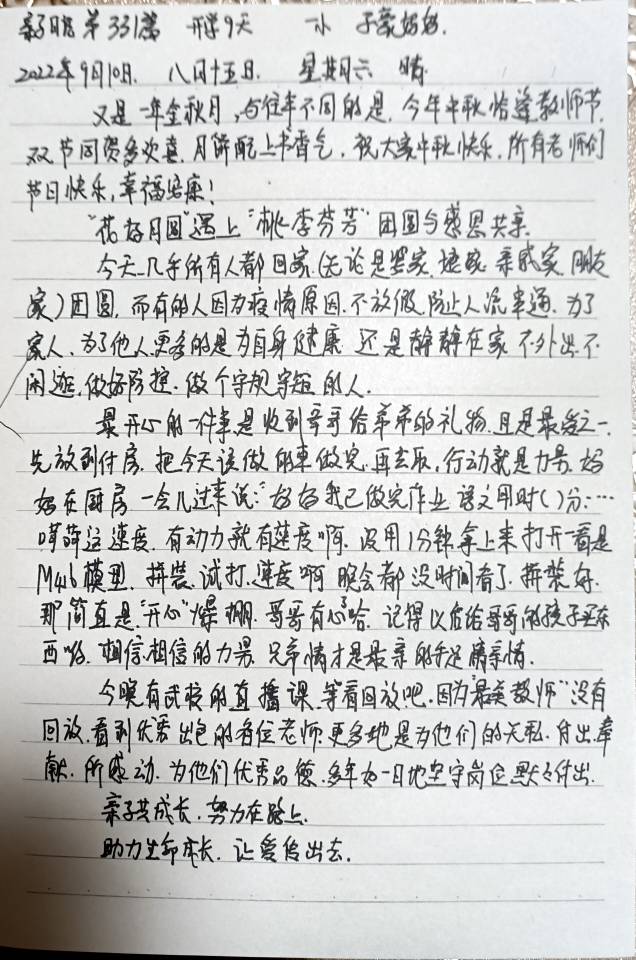 亲子日记 第331篇 开学9天 一小 子蒙妈妈.
2022年9月10日. 八月十五日. 星期六 晴.
又是一年金秋月,与往年不同的是,今年中秋恰逢教师节,
双节同贺多欢喜.月饼配上书香气,祝大家中秋快乐,所有老师们
节日快乐,幸福安康!
“花好月圆”遇上“桃李芬芳”团圆与感恩共亲.
今天几乎所有人都回家.(无论是娘家.婆家.亲戚家.朋友
家)团圆,而有的人因为疫情原因.不放假.防止人流串通.为了
家人.为了他人.更多的是为自身健康.还是静静在家.不外出.不
闲逛.做好防控.做个守规守矩的人.
最开心的一件事是收到哥哥给弟弟的礼物.且是最爱之一.
先放到付房.把今天该做的事做完.再去取,行动就是力量.妈
妈在厨房一会儿过来说:“妈妈我已做完作业 语文用时( )分…
嗬嗬这速度.有动力就有速度啊.没用1分钟拿上来打开一看是
M416模型.拼装.试打.速度啊 晚会都没时间看了.拼装好.
那简直是“开心”爆棚.哥哥有心了哈.记得以后给哥哥的孩子买东
西哟.相信相信的力量.兄弟情才是最亲的手足情亲情.
今晚有武校的直播课.等看回放吧.因为“最美教师”没有
回放.看到优秀出色的各位老师.更多地是为他们的无私.付出.奉
献.所感动.为他们优秀品德.多年如一日地坚守岗位默默付出.
亲子共成长.努力在路上.
助力生命成长.让爱传出去.